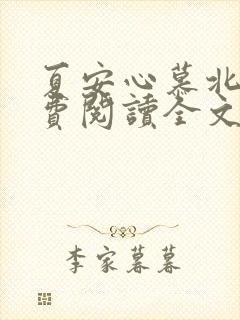 夏安心慕北
費閱讀全文
李家暮暮